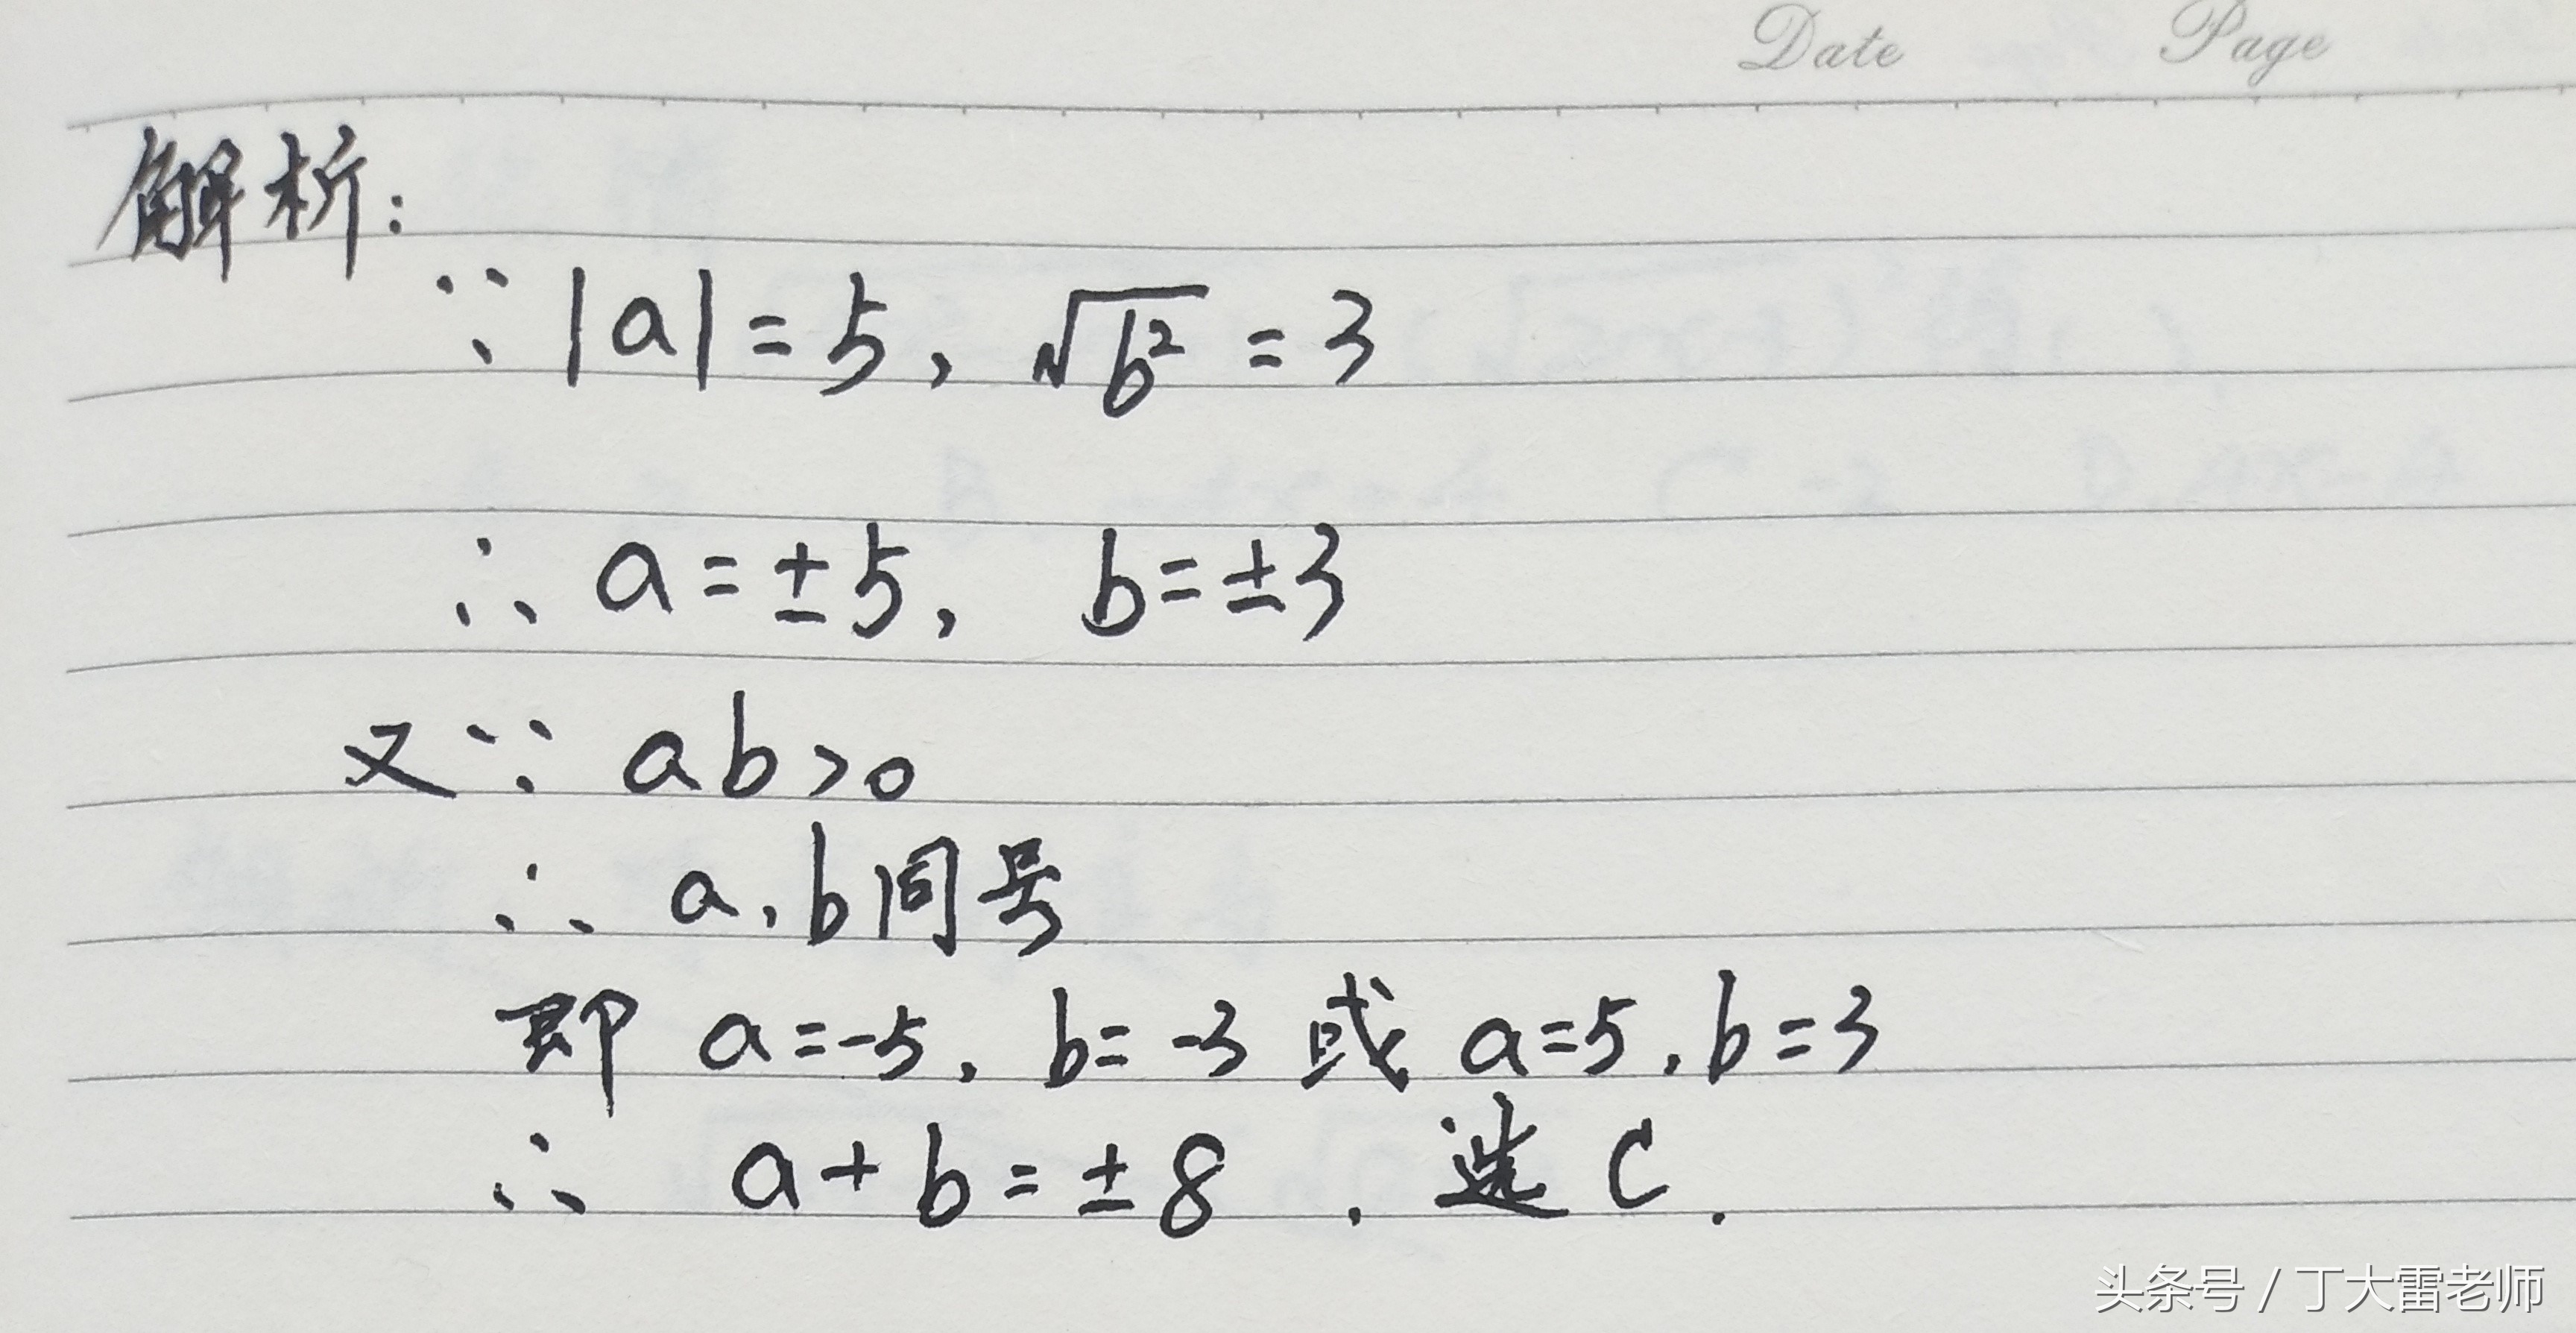 Date Page
解析:
∵ |a|=5, √b² =3
∴ a=±5, b=±3
又∵ ab>0
∴ a,b同号
即 a=-5, b=-3 或 a=5,b=3
∴ a+b=±8 . 选 C.
头条号 / 丁大雷老师